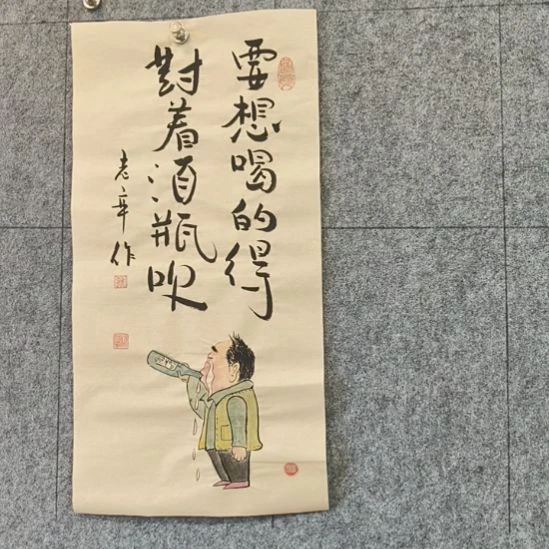 要想喝的得
對着酒瓶吹
老辛作